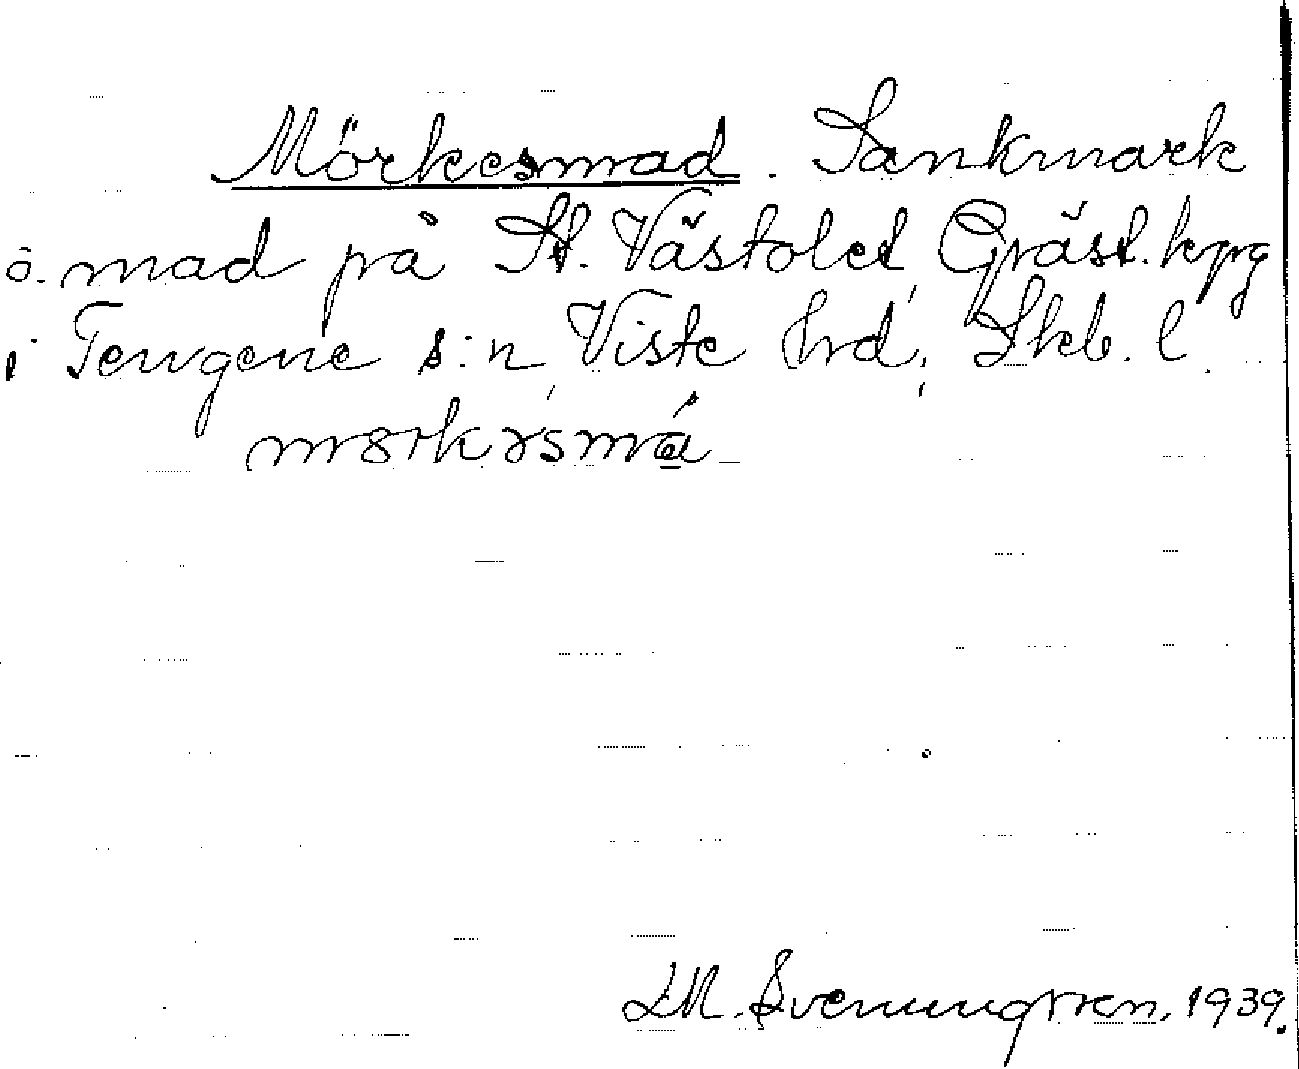 Mörkesmad. Sankmark
o. mad på St. Västölet, Gräst. kpg
i Tengene s:n, Viste hrd, Skb. l.
mörkəsmá
LM. Svenungsson, 1939.